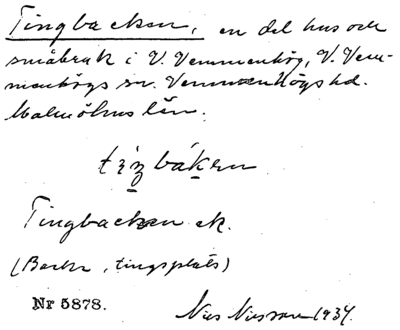 Tingbacken, en del hus och
småbruk i V. Vemmenhög, V. Vem-
menhögs sn. Vemmenhögs hd.
Malmöhus län.
Tingbacken ek.
(Backe, tingsplats)
Nr 5878. Nils Nilsson 1934.